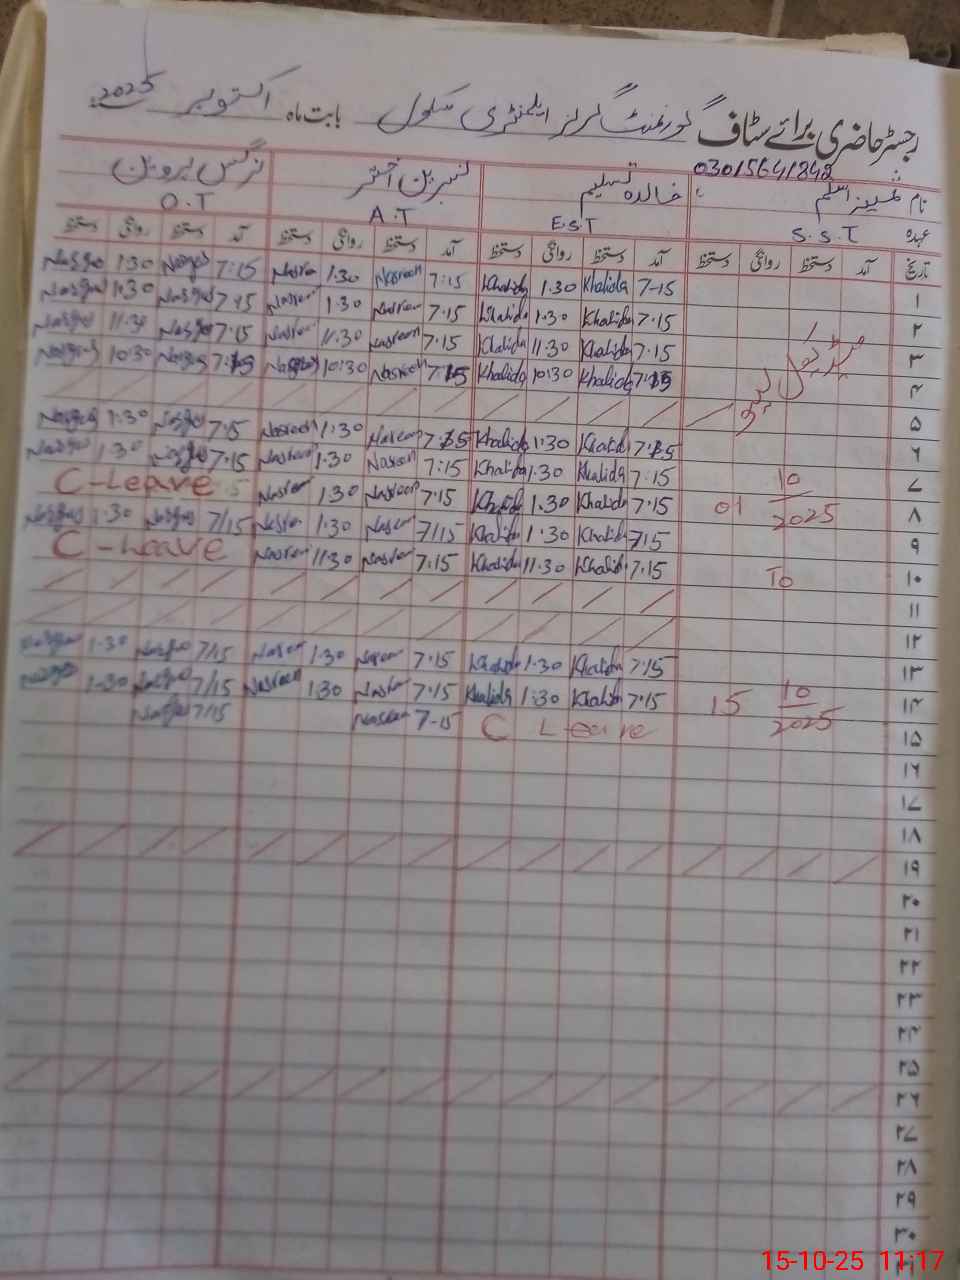 رجسٹر حاضری برائے سٹاف گورنمنٹ گرلز ایلمنٹری سکول بابت ماہ اکتوبر 2025ء
03015641848
نام اسلم خالدہ تسلیم نسرین اختر نرگس پروین
عہدہ S.S.T E.S.T A.T O.T
تاریخ آمد دستخط روانگی دستخط آمد دستخط روانگی دستخط آمد دستخط روانگی دستخط آمد دستخط روانگی دستخط
۱ 7-15 Khalida 1.30 Khalida 7:15 Nasreen 1:30 Nasreen 7:15 Nargas 1:30 Nargas
۲ 7.15 Khalida 1.30 Khalida 7.15 Nasreen 1.30 Nasreen 7.15 Nargas 1.30 Nargas
۳ میڈیکل لیو 7.15 Khalida 11.30 Khalida 7.15 Nasreen 11.30 Nasreen 7.15 Nargas 11.30 Nargas
۴ 7.15 Khalida 10.30 Khalida 7.15 Nasreen 10.30 Nasreen 7.15 Nargas 10.30 Nargas
۵
۶ 7.15 Khalida 1.30 Khalida 7.15 Nasreen 1.30 Nasreen 7.15 Nargas 1.30 Nargas
۷ 7.15 Khalida 1.30 Khalida 7:15 Nasreen 1.30 Nasreen 7.15 Nargas 1.30 Nargas
۸ 01 10/2025 7.15 Khalida 1.30 Khalida 7.15 Nasreen 1.30 Nasreen C-Leave
۹ 7.15 Khalida 1.30 Khalida 7/15 Nasreen 1.30 Nasreen 7/15 Nargas 1.30 Nargas
۱۰ To 7.15 Khalida 11.30 Khalida 7.15 Nasreen 11.30 Nasreen C-Leave
۱۱
۱۲
۱۳ 7.15 Khalida 1.30 Khalida 7.15 Nasreen 1.30 Nasreen 7/15 Nargas 1.30 Nargas
۱۴ 15 10/2025 7.15 Khalida 1:30 Khalida 7.15 Nasreen 1.30 Nasreen 7/15 Nargas 1.30 Nargas
۱۵ C Leave 7-15 Nasreen 7/15 Nargas
۱۶
۱۷
۱۸
۱۹
۲۰
۲۱
۲۲
۲۳
۲۴
۲۵
۲۶
۲۷
۲۸
۲۹
۳۰
۳۱
15-10-25 11:17